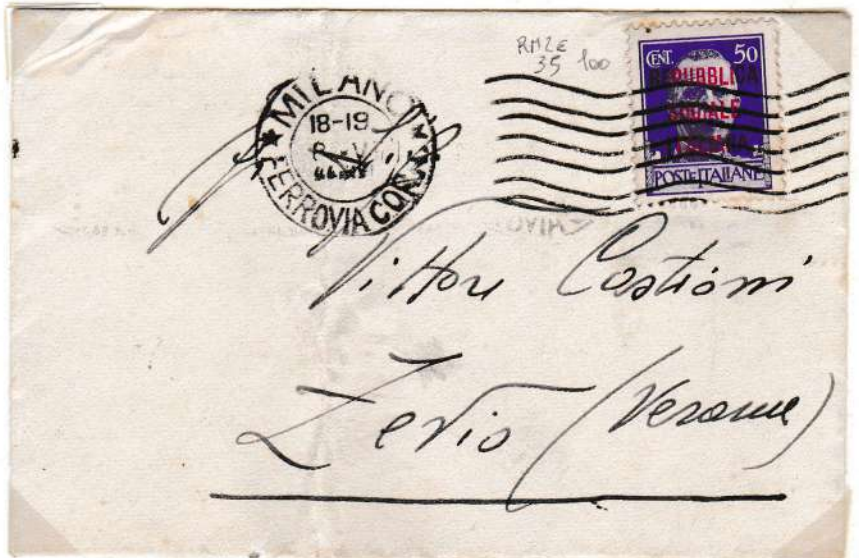 RM2E
35 100
CENT. 50
REPUBBLICA
SOCIALE
ITALIANA
POSTE ITALIANE
MILANO
18-19
FERROVIA CORR.
Vittore Castioni
Zevio (Verona)